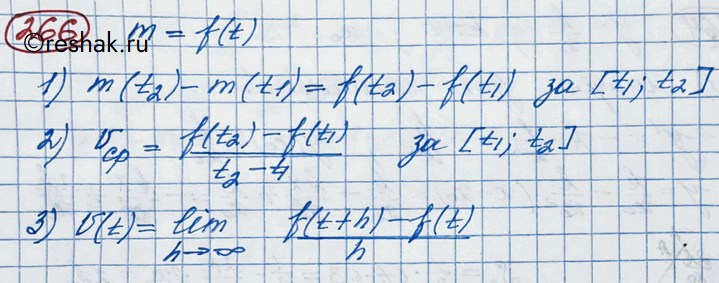 266 m = f(t)
©reshak.ru
1) m(t₂) - m(t1) = f(t₂) - f(t₁) за [t₁; t₂]
2) υ_ср = \frac{f(t₂) - f(t₁)}{t₂ - t₁} за [t₁; t₂]
3) υ(t) = \lim_{h→∞} \frac{f(t+h) - f(t)}{h}